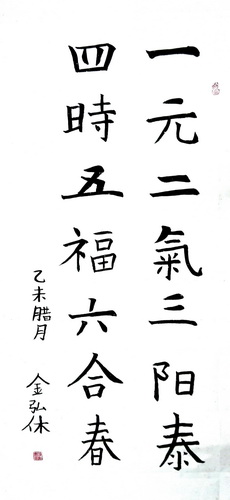 一元二氣三阳泰
四時五福六合春
乙未腊月
金弘休